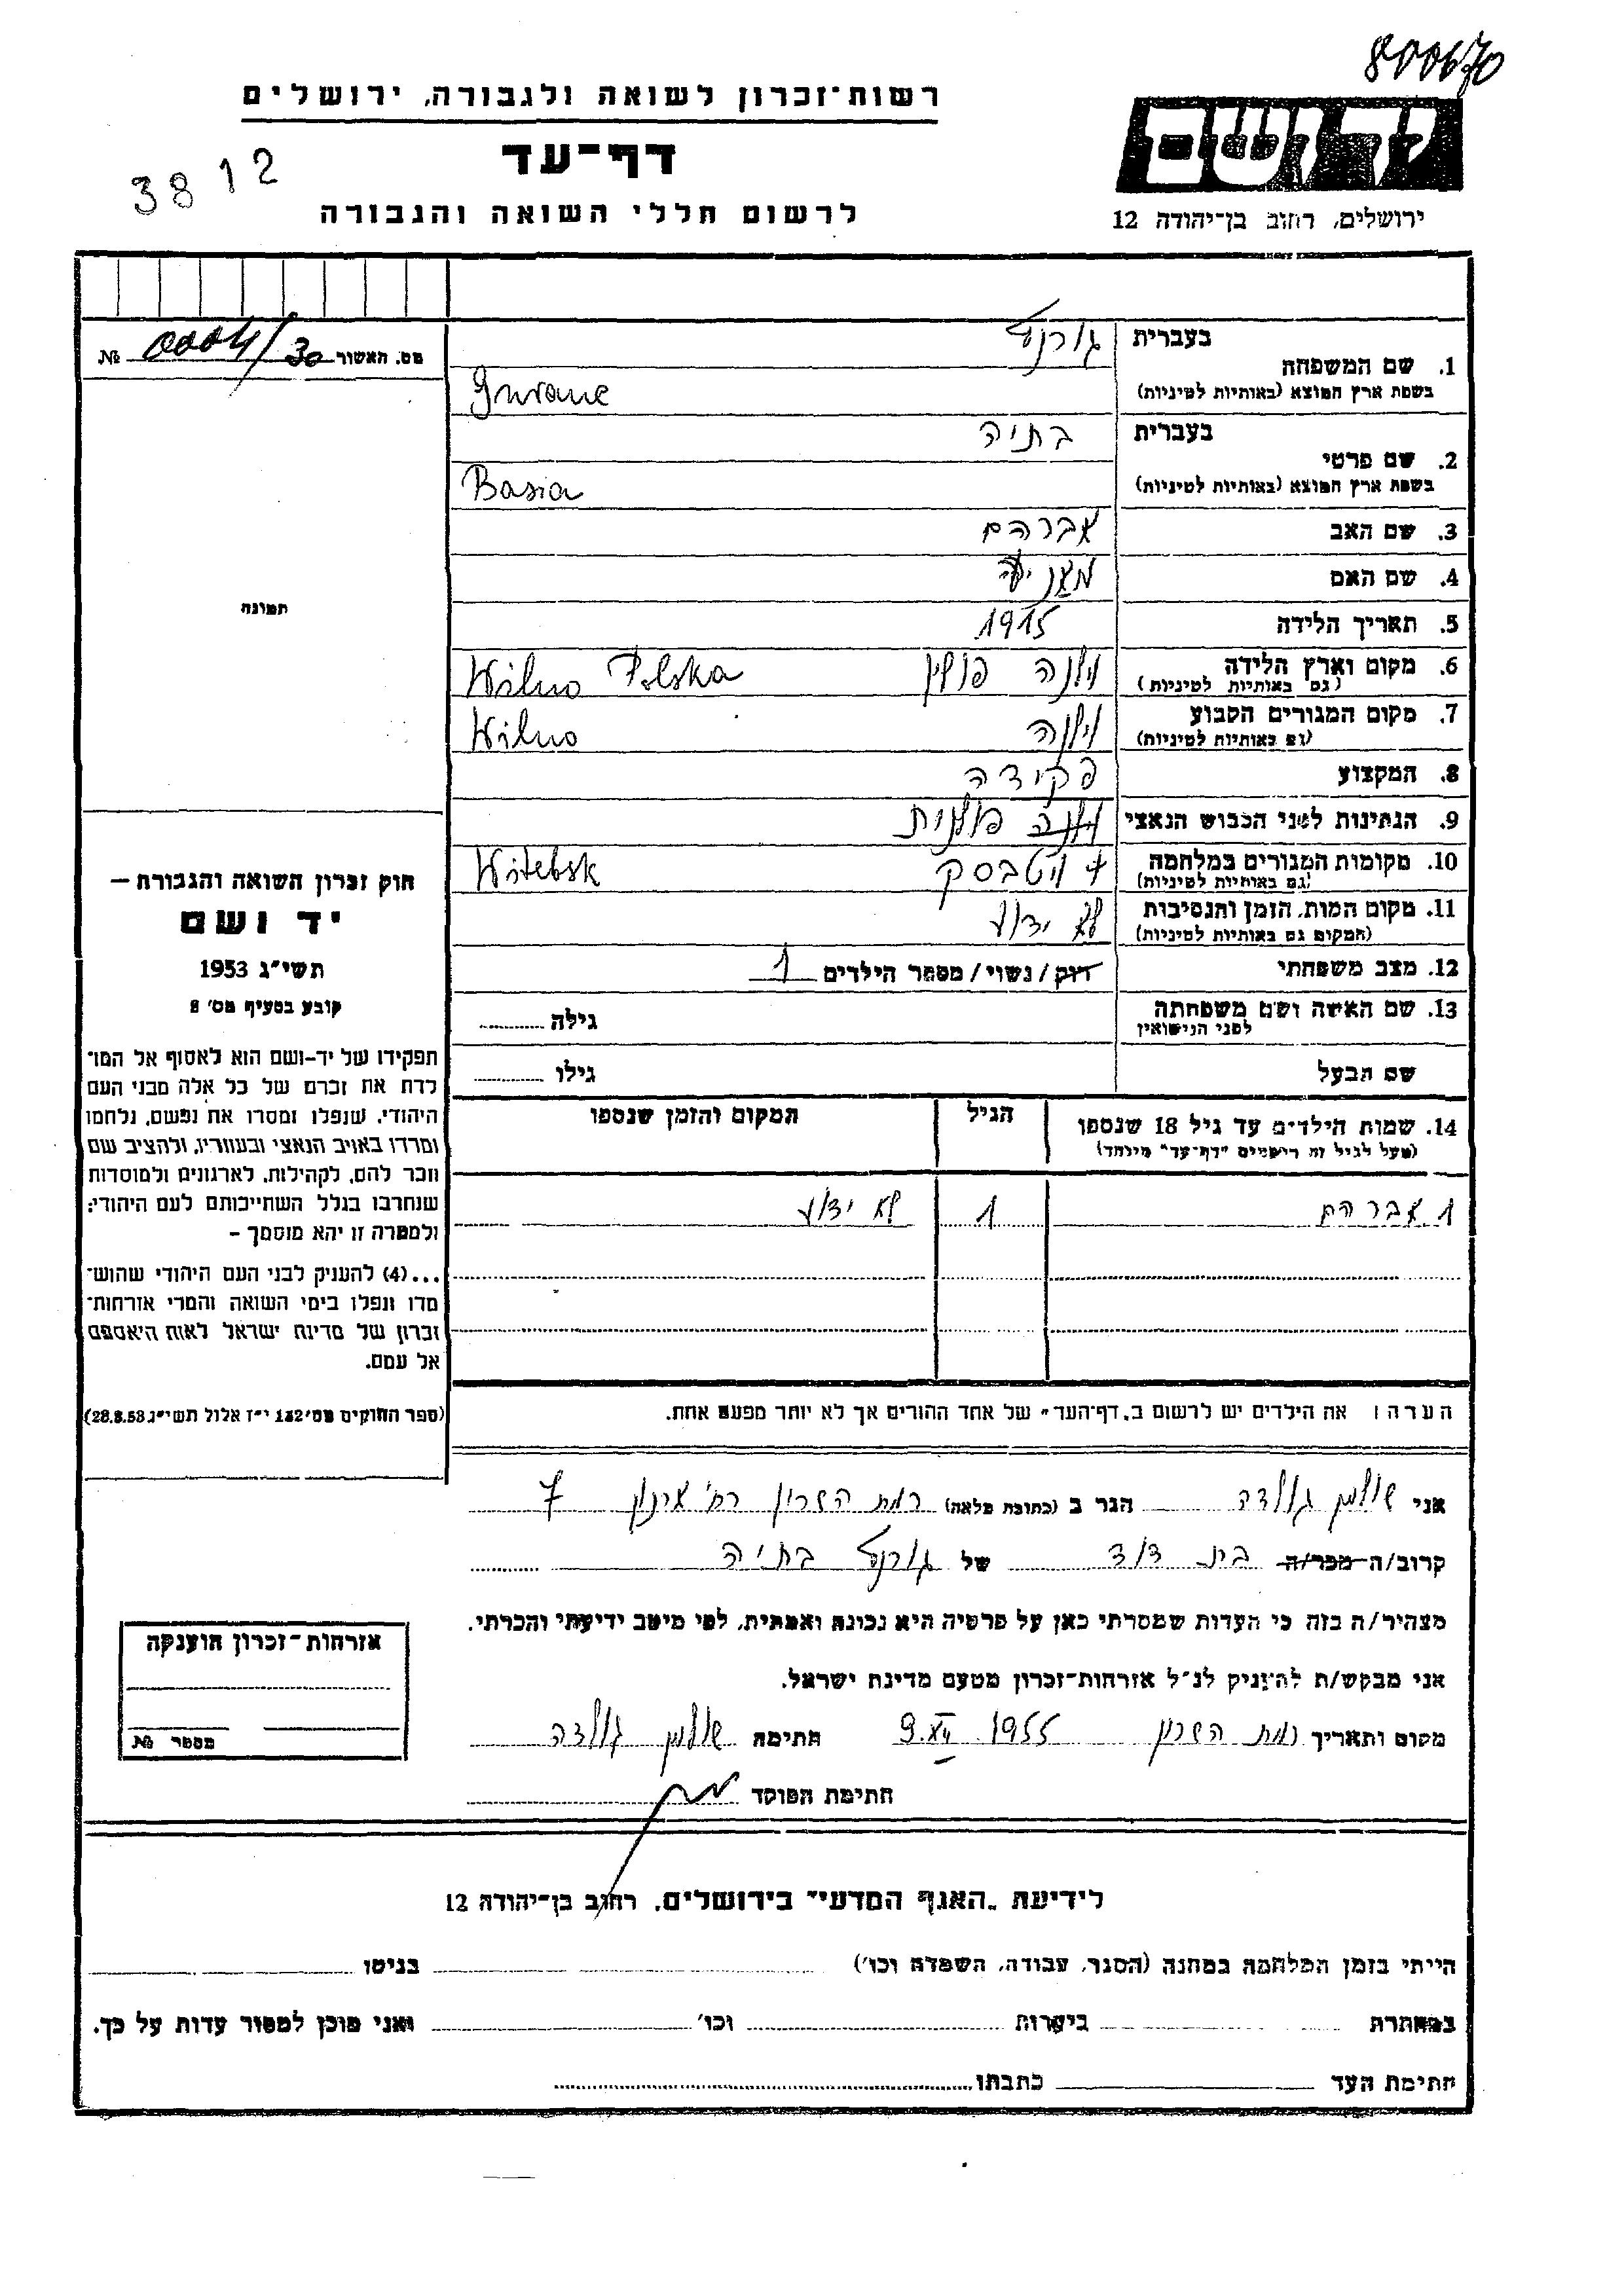 800670
רשות־זכרון לשואה ולגבורה, ירושלים
דף־עד
3812
לרשום חללי השואה והגבורה
יד ושם
ירושלים, רחוב בן־יהודה 12
מס. האשור 0004/30 №
תמונה
חוק זכרון השואה והגבורה –
יד ושם
תשי״ג 1953
קובע בסעיף מס׳ 8
תפקידו של יד-ושם הוא לאסוף אל המו־
לדת את זכרם של כל אלה מבני העם
היהודי, שנפלו ומסרו את נפשם, נלחמו
ומרדו באויב הנאצי ובעוזריו, ולהציב שם
וזכר להם, לקהילות, לארגונים ולמוסדות
שנחרבו בגלל השתייכותם לעם היהודי;
ולמטרה זו יהא מוסמך –
...(4) להעניק לבני העם היהודי שהוש־
מדו ונפלו בימי השואה והמרי אזרחות־
זכרון של מדינת ישראל לאות היאספם
אל עמם.
(ספר החוקים מס׳ 132 י״ז אלול תשי״ג 28.8.53)
1. שם המשפחה בעברית
בשפת ארץ המוצא (באותיות לטיניות)
2. שם פרטי בעברית בתיה
בשפת ארץ המוצא (באותיות לטיניות) Basia
3. שם האב אברהם
4. שם האם
5. תאריך הלידה 1915
6. מקום וארץ הלידה וילנה פולין Wilno Polska
(גם באותיות לטיניות)
7. מקום המגורים הקבוע וילנה Wilno
(גם באותיות לטיניות)
8. המקצוע פקידה
9. הנתינות לפני הכבוש הנאצי וילנה פולנית
10. מקומות המגורים במלחמה ויטבסק Witebsk
(גם באותיות לטיניות)
11. מקום המות, הזמן והנסיבות לא ידוע
(המקום גם באותיות לטיניות)
12. מצב משפחתי רווק/נשוי/מספר הילדים 1
13. שם האשה ושם משפחתה גילה
לפני הנישואין
שם הבעל גילו
14. שמות הילדים עד גיל 18 שנספו הגיל המקום והזמן שנספו
(מעל לגיל זה רישמים "דף־עד" מיוחד)
1 אברהם 1 לא ידוע
הערה: את הילדים יש לרשום ב„דף־העד״ של אחד ההורים אך לא יותר מפעם אחת.
אני שולמן גולדה הגר ב (כתובת מלאה) רמת השרון רח׳ 7
קרוב/ה מכר/ה בת דוד של בתיה
מצהיר/ה בזה כי העדות שמסרתי כאן על פרטיה היא נכונה ואמתית, לפי מיטב ידיעתי והכרתי.
אני מבקש/ת להעניק לנ״ל אזרחות־זכרון מטעם מדינת ישראל.
מקום ותאריך רמת השרון 9.XII 1955 חתימה שולמן גולדה
חתימת הפוקד
אזרחות־זכרון הוענקה
מספר №
לידיעת „האגף המדעי״ בירושלים, רחוב בן־יהודה 12
הייתי בזמן המלחמה במחנה (הסגר, עבודה, השמדה וכו׳) בגיטו
במחתרת ביערות וכו׳ ואני מוכן למסור עדות על כך.
חתימת העד כתבתו